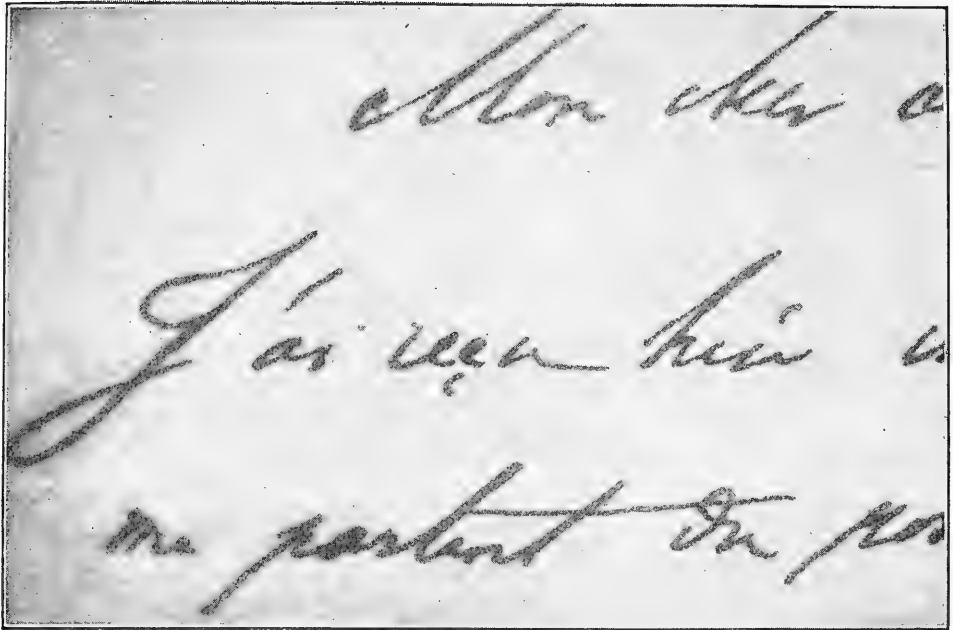 Mon cher a
J'ai reçu hier
me parlant du